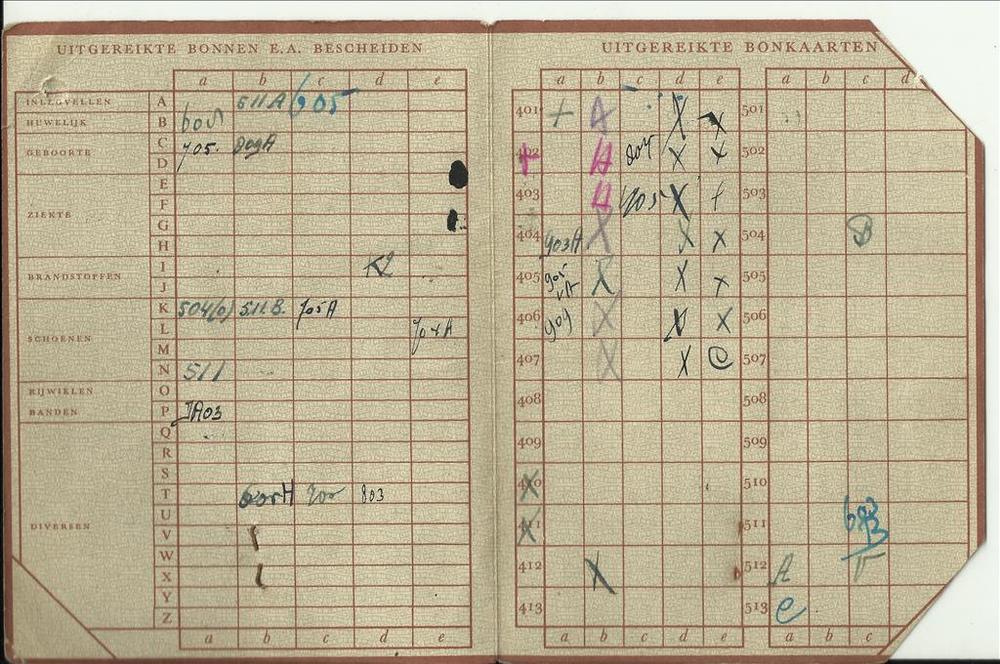 UITGEREIKTE BONNEN E.A. BESCHEIDEN
a b c d e
INLEGVELLEN A 511A 605
HUWELIJK B
GEBOORTE C 705.
D
E
ZIEKTE F
G
H
BRANDSTOFFEN I K2
J
K 504(0) 511.B. 705A
SCHOENEN L 704A
M
N 511
RIJWIELEN O
BANDEN P JA03
Q
R
S
T 803
U
DIVERSEN V
W
X
Y
Z
a b c d e
UITGEREIKTE BONKAARTEN
a b c d e a b c d
401 + A X X 501
402 A X X 502
403 705 X 503
404 903A X X X 504 B
405 X X X 505
406 X X 506
407 X X e 507
408 508
409 509
410 X 510
411 X 511 603
412 X 512 A
413 513 e
a b c d e a b c